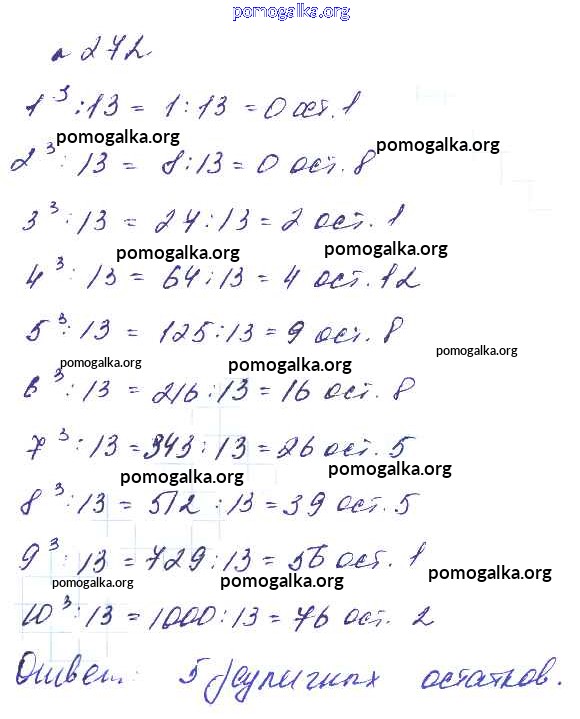 pomogalka.org
№ 272
1³ : 13 = 1 : 13 = 0 ост. 1
pomogalka.org pomogalka.org
2³ : 13 = 8 : 13 = 0 ост. 8
3³ : 13 = 27 : 13 = 2 ост. 1
pomogalka.org pomogalka.org
4³ : 13 = 64 : 13 = 4 ост. 12
5³ : 13 = 125 : 13 = 9 ост. 8
pomogalka.org pomogalka.org pomogalka.org
6³ : 13 = 216 : 13 = 16 ост. 8
7³ : 13 = 343 : 13 = 26 ост. 5
pomogalka.org pomogalka.org
8³ : 13 = 512 : 13 = 39 ост. 5
9³ : 13 = 729 : 13 = 56 ост. 1
pomogalka.org pomogalka.org pomogalka.org
10³ : 13 = 1000 : 13 = 76 ост. 2
Ответ: 5 остатков.